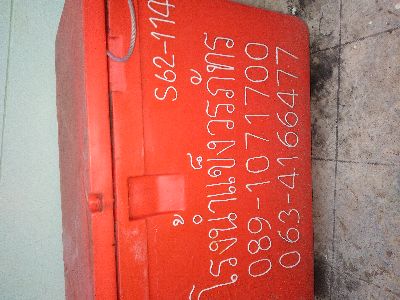 S62-114
โรงน้ำแข็งวรภัทร
089-1071700
063-4166477